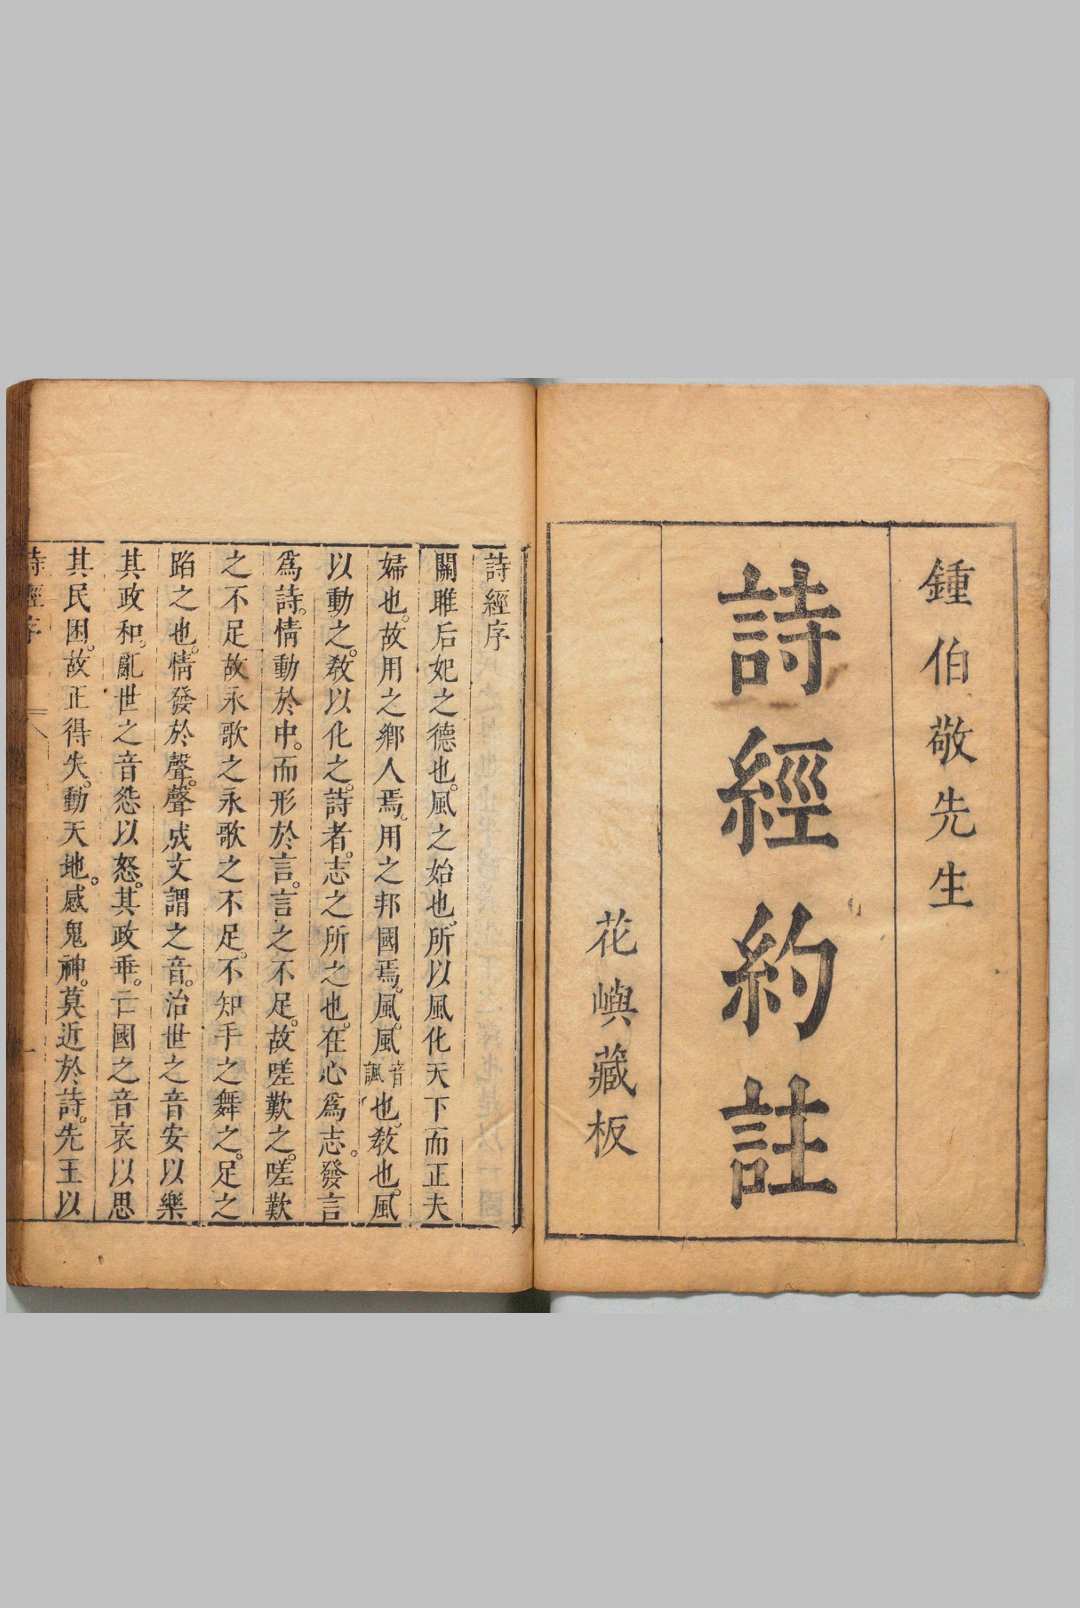 鍾伯敬先生
詩經約註
花嶼藏板
詩經序
關雎后妃之德也。風之始也。所以風化天下而正夫
婦也。故用之鄉人焉。用之邦國焉。風。風音諷也。敎也。風
以動之。敎以化之。詩者。志之所之也。在心爲志。發言
爲詩。情動於中。而形於言。言之不足。故嗟歎之。嗟歎
之不足故永歌之永歌之不足。不知手之舞之。足之
蹈之也。情發於聲。聲成文謂之音。治世之音安以樂
其政和。亂世之音怨以怒。其政乖。亡國之音哀以思
其民困。故正得失。動天地。感鬼神。莫近於詩。先王以
詩經序
一